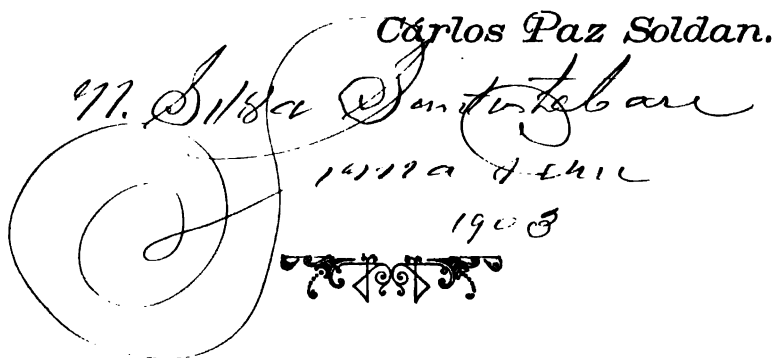 Carlos Paz Soldan.
M. Silva Santisteban
Lima Peru
1903